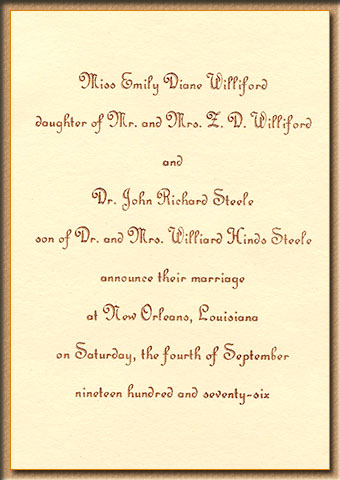 Miss Emily Diane Williford
daughter of Mr. and Mrs. Z. D. Williford
and
Dr. John Richard Steele
son of Dr. and Mrs. Williard Hinds Steele
announce their marriage
at New Orleans, Louisiana
on Saturday, the fourth of September
nineteen hundred and seventy-six